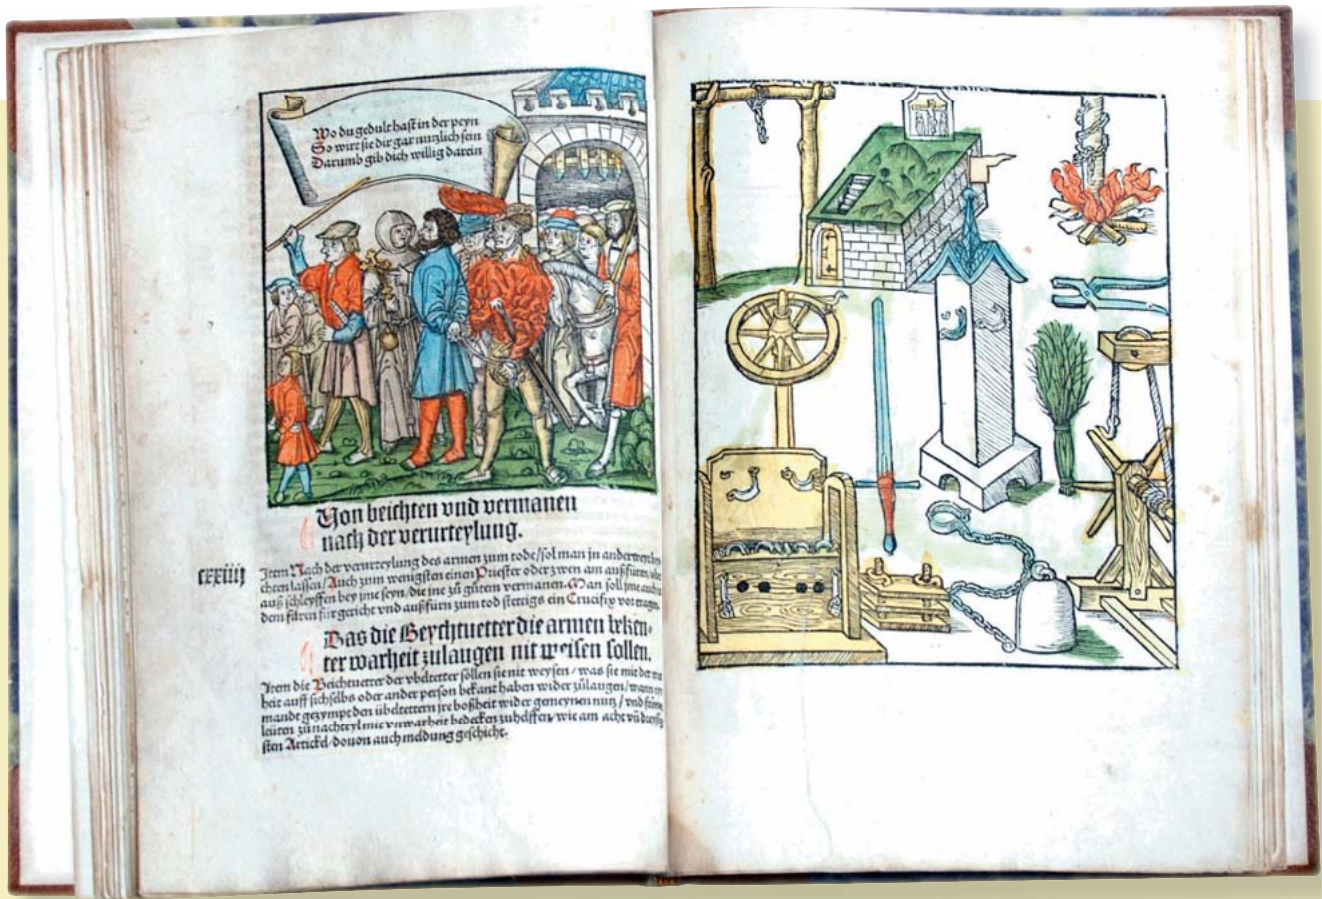 Wo du gedult hast in der peyn
So wirt sie dir gar nutzlich sein
Darumb gib dich willig darein
Von beichten vnd vermanen
nach der verurteylung.
Item Nach der verurteylung des armen zum tode/sol man in anderweyt
chten lassen/Auch zum wenigsten einen Priester oder zwen am außfüren/oder
auß schleyffen bey jme seyn/die jne zů gůtem vermanen. Man soll jme auch
dem fůren für gericht vnd außfürn zum tod stettigs ein Crucifix vor tragen.
Das die Beychtuetter die armen beken-
ter warheit zulaugen nit weisen sollen.
Item die Beichtuetter der vbeltetter söllen sie nit weysen/was sie mit der
heit auff sich selbs oder ander person bekant haben wider zůlaugen/wann
mandt gezympt den übeltettern jre boßheit wider gemeynen nutz/vnd
leüten zů nachteyl mit vnwarheit bedecken zuhelffen/wie am acht vñ
sten Artickel/douon auch meldung geschicht.